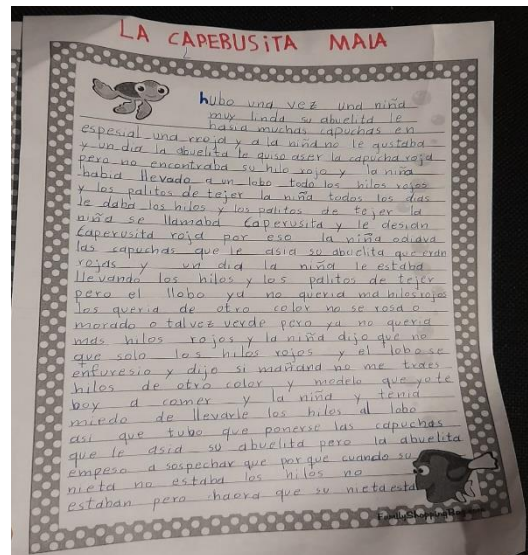 LA CAPEBUSiTA MALA
hubo una vez una niña
muy linda su abuelita le
hasia muchas capuchas en
espesial una rroja y a la niña no le gustaba
y un dia la abuelita le quiso aser la capucha roja
pero no encontraba su hilo rojo y la niña
habia llevado a un lobo todo los hilos rojos
y los palitos de tejer la niña todos los dias
le daba los hilos y los palitos de tejer la
niña se llamaba Caperusita y le desian
Caperusita roja por eso la niña odiava
las capuchas que le asia su abuelita que eran
rojas y un dia la niña le estaba
llevando los hilos y los palitos de tejer
pero el llobo ya no queria ma hilos rojos
los queria de otro color no se rosa o
morado o talvez verde pero ya no queria
mas hilos rojos y la niña dijo que no
que solo los hilos rojos y el lobo se
enfuresio y dijo si mañana no me traes
hilos de otro color y modelo que yo te
boy a comer y la niña y tenia
miedo de llevarle los hilos al lobo
asi que tubo que ponerse las capuchas
que le asia su abuelita pero la abuelita
empeso a sospechar que por que cuando su
nieta no estaba los hilos no
estaban pero haora que su nieta esta
FamilyShoppingBag